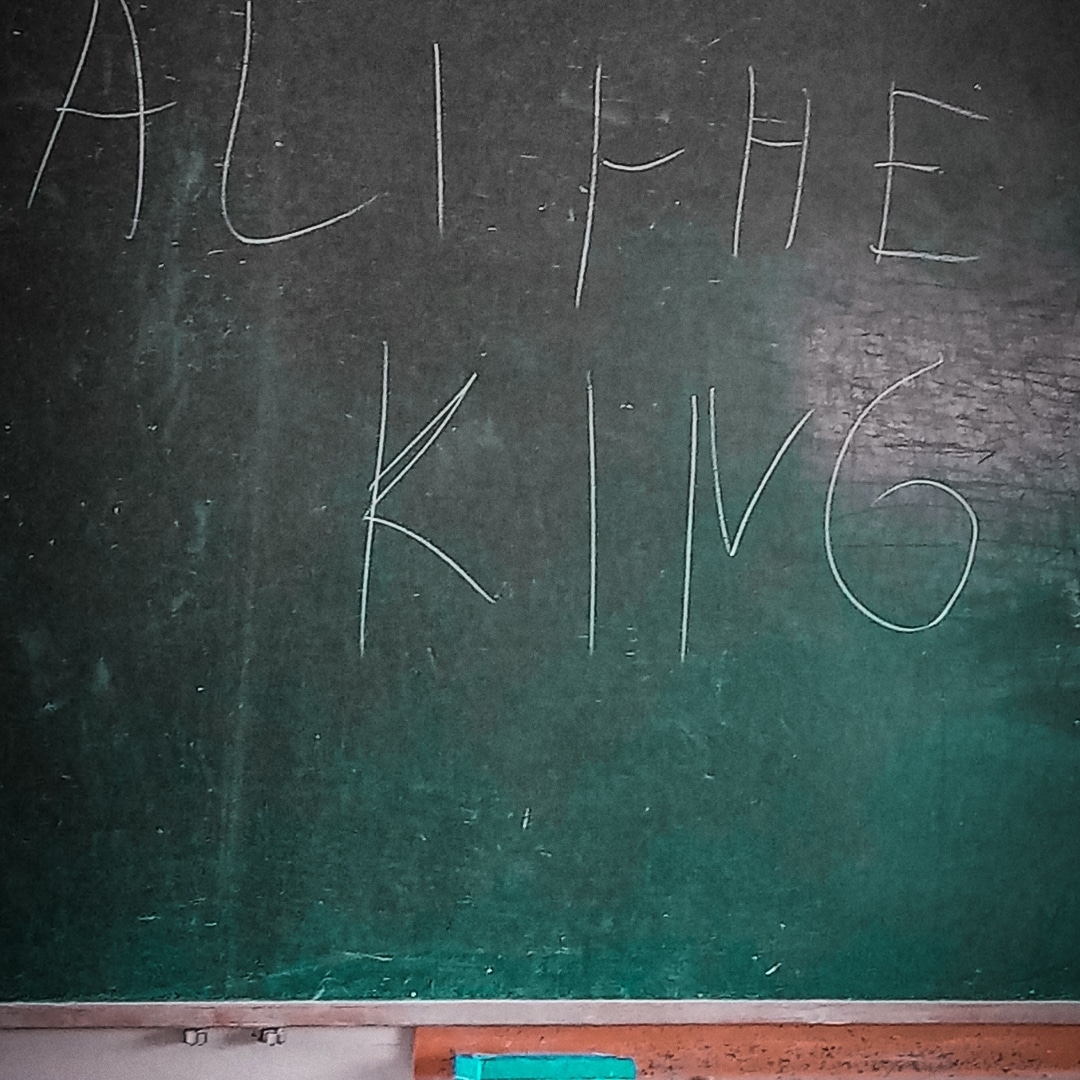 ALI THE
KING